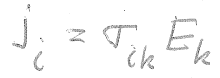 j_i = σ_{ik} E_k